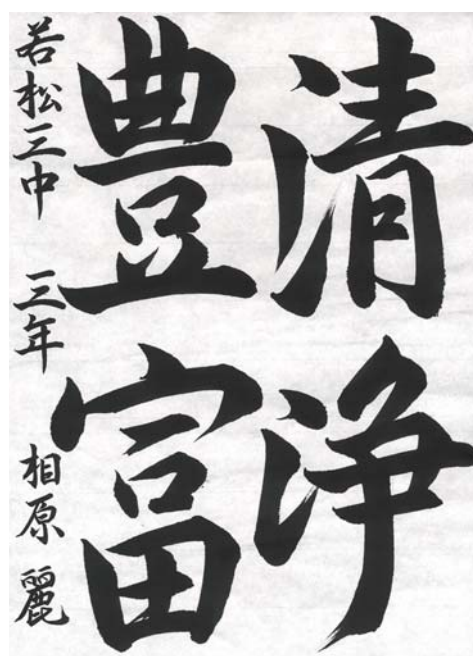 清浄
豊富
若松三中 三年 相原 麗